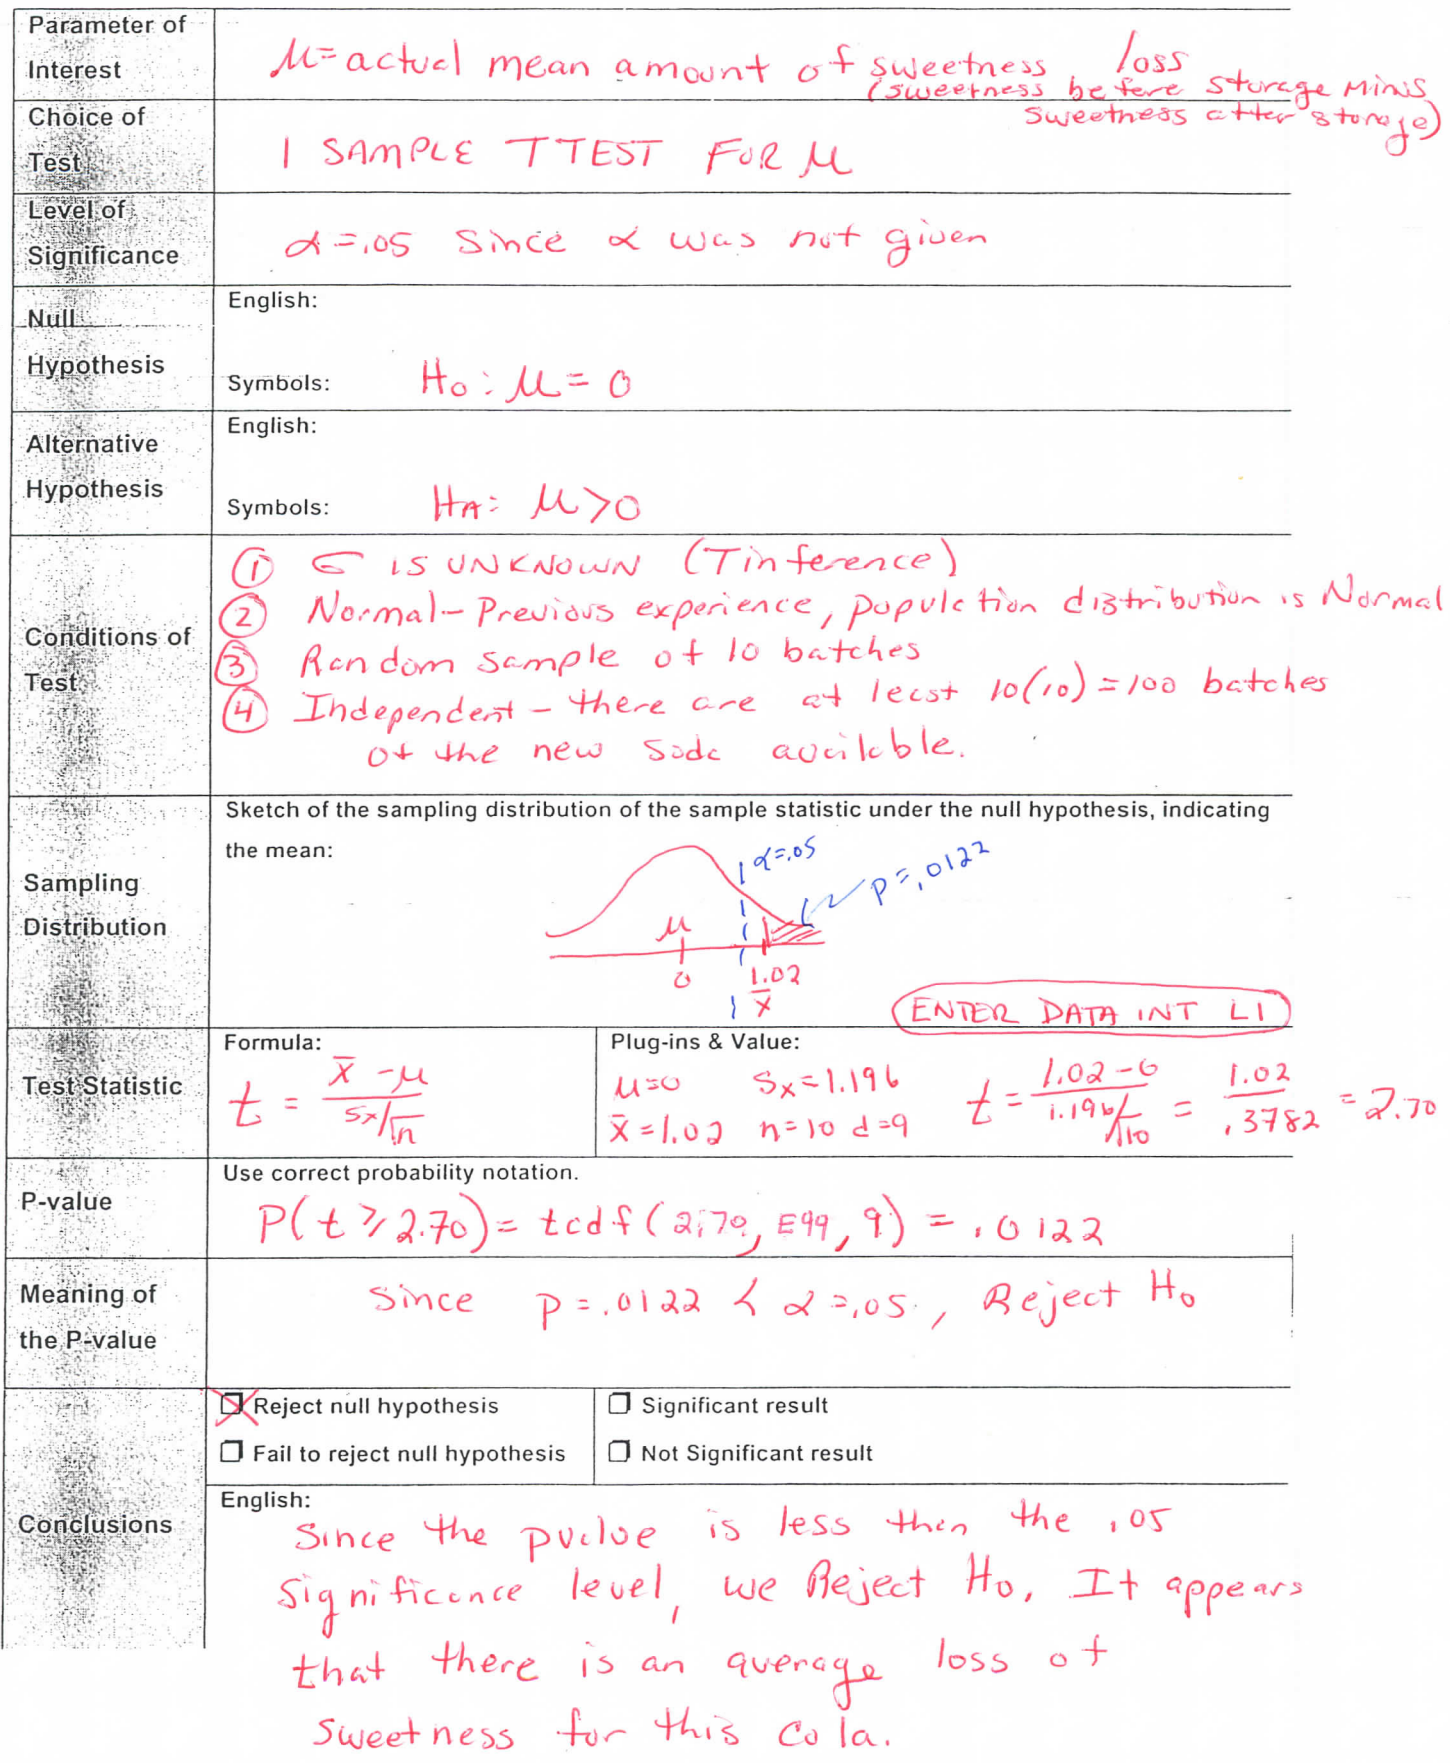 Parameter of Interest
μ= actual mean amount of sweetness loss
(sweetness before storage minus
sweetness after storage)
Choice of Test
1 SAMPLE T TEST FOR μ
Level of Significance
α=.05 Since α was not given
Null Hypothesis
English:
Symbols: H₀: μ = 0
Alternative Hypothesis
English:
Symbols: HA: μ>0
Conditions of Test
① σ IS UNKNOWN (T inference)
② Normal - Previous experience, population distribution is Normal
③ Random sample of 10 batches
④ Independent - there are at least 10(10) = 100 batches
of the new soda available.
Sampling Distribution
Sketch of the sampling distribution of the sample statistic under the null hypothesis, indicating
the mean:
α=.05
p=.0122
μ
0
1.02
x̄
ENTER DATA INT L1
Test Statistic
Formula:
t = (x̄ - μ) / (sx/√n)
Plug-ins & Value:
μ=0 Sx=1.196
x̄=1.02 n=10 d=9
t = (1.02-0) / (1.196/√10) = 1.02 / .3782 = 2.70
P-value
Use correct probability notation.
P(t ≥ 2.70) = tcdf(2.70, E99, 9) = .0122
Meaning of the P-value
Since p=.0122 < α=.05, Reject H₀
Conclusions
Reject null hypothesis
Fail to reject null hypothesis
Significant result
Not Significant result
English:
Since the pvalue is less then the .05
significance level, we Reject H₀. It appears
that there is an average loss of
sweetness for this cola.